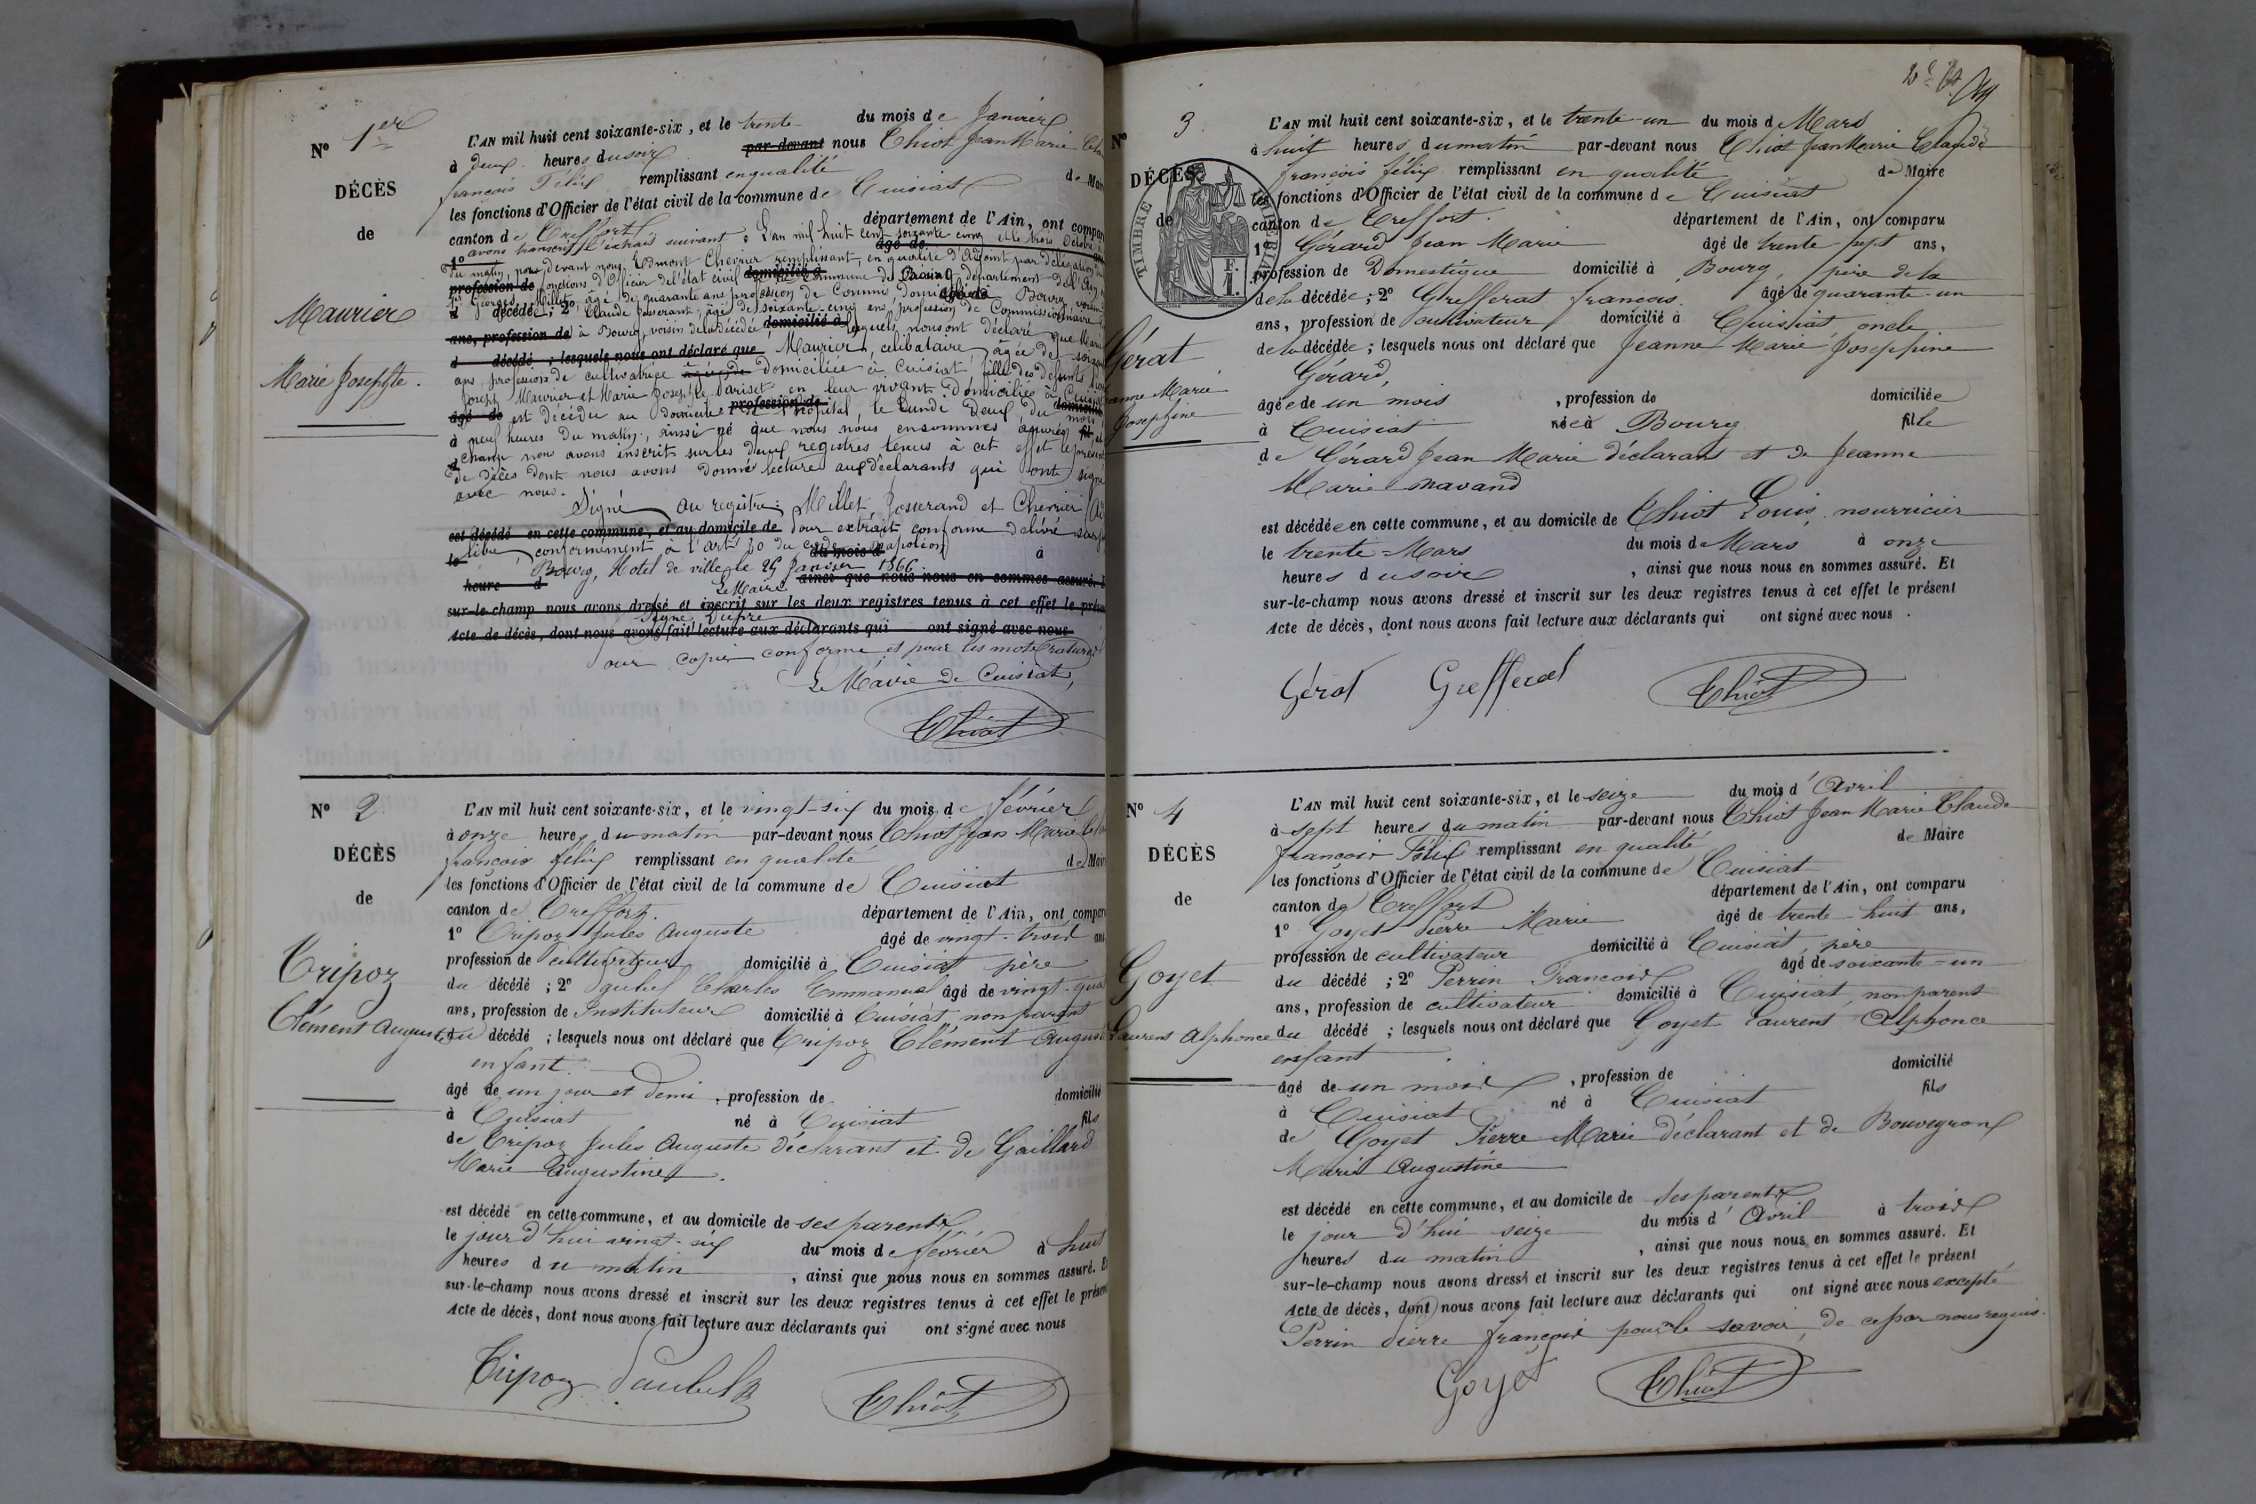 N° 1er
DÉCÈS
de
Maurier
Marie Josephte.
L'AN mil huit cent soixante-six, et le trente du mois de Janvier
à deux heures du soir par-devant nous Thiot Jean Marie
françois Félix remplissant en qualité de
les fonctions d'Officier de l'état civil de la commune de Cuisiat
canton de Treffort département de l'Ain, ont
avons transcrit l'extrait suivant : L'an mil huit cent soixante cinq et le trois Octobre
1° âgé de
du matin, par devant nous Edmont Chevrier remplissant, en qualité d'Adjoint par délégation
profession de fonctions d'Officier de l'état civil domicilié à commune de Bourg département de l'Ain
1° Georges Millet, âgé de quarante ans profession de Commis, domicilié à Bourg, voisin
d décédé ; 2° Claude Josserant, âgé de soixante cinq ans, profession de Commissionnaire
ans, profession de à Bourg, voisin de la décédée domicilié à lesquels nous ont déclaré que Marie
d décédé ; lesquels nous ont déclaré que Maurier, célibataire, âgée de
ans, profession de cultivatrice domiciliée à Cuisiat fille des défunts
Joseph Maurier et Marie Josephte Pariset en leur vivant domiciliés à
âgé de est décédée au domicile de l'hopital, profession de le Lundi Deux du mois
à neuf heures du matin, ainsi né que nous nous en sommes assuré, et
champ nous avons inscrit sur les deux registres tenus à cet effet le présent
de décès dont nous avons donné lecture aux déclarants qui ont signé
avec nous.
Signé au registre : Millet, Josserand et Chevrier
est décédé en cette commune, et au domicile de Pour extrait conforme délivré sur
le libre conformément à l'art. 80 du code Napoléon du mois d à
Bourg, Hotel de ville, le 25 Janvier 1866.
heure d ainsi que nous nous en sommes assuré.
Le Maire
sur-le-champ nous avons dressé et inscrit sur les deux registres tenus à cet effet le
Signé Dupré
Acte de décès, dont nous avons fait lecture aux déclarants qui ont signé avec nous
Pour copie conforme et pour les mots raturés
Le Maire de Cuisiat,
Thiot
N° 2
DÉCÈS
de
Tripoz
Clément Auguste
L'AN mil huit cent soixante-six, et le vingt-six du mois de février
à onze heures du matin par-devant nous Thiot Jean Marie
françois félix remplissant en qualité de
les fonctions d'Officier de l'état civil de la commune de Cuisiat
canton de Treffort. département de l'Ain, ont
1° Tripoz Jules Auguste âgé de vingt-trois
profession de cultivateur domicilié à Cuisiat père
du décédé ; 2° Charles Emmanuel âgé de
ans, profession de Instituteur domicilié à Cuisiat, non parent
du décédé ; lesquels nous ont déclaré que Tripoz Clément
enfant.
âgé de un jour et demi, profession de domicilié
à Cuisiat né à Cuisiat fils
de Tripoz Jules Auguste déclarant et de Gaillard
Marie Augustine.
est décédé en cette commune, et au domicile de ses parents
le jour d'hui vingt-six du mois de février à huit
heures du matin, ainsi que nous nous en sommes assuré.
sur-le-champ nous avons dressé et inscrit sur les deux registres tenus à cet effet le
Acte de décès, dont nous avons fait lecture aux déclarants qui ont signé avec nous
Tripoz Thiot
N° 3
DÉCÈS
de
TIMBRE IMPERIAL
Gérat
Marie
Joséphine
L'AN mil huit cent soixante-six, et le trente-un du mois de Mars
à huit heures du matin par-devant nous Thiot Jean Marie Claude
françois félix remplissant en qualité de Maire
les fonctions d'Officier de l'état civil de la commune de Cuisiat
canton de Treffort. département de l'Ain, ont comparu
1° Gérard Jean Marie âgé de trente sept ans,
profession de Domestique domicilié à Bourg, père de la
de la décédée ; 2° Grefferat françois. âgé de quarante-un
ans, profession de cultivateur domicilié à Cuisiat oncle
de la décédée ; lesquels nous ont déclaré que Jeanne Marie Joséphine
Gérard,
âgée de un mois, profession de domiciliée
à Cuisiat née à Bourg fille
de Gérard Jean Marie déclarant et de Jeanne
Marie Mavand
est décédée en cette commune, et au domicile de Thiot Louis, nourricier
le trente-Mars du mois de Mars à onze
heures du soir, ainsi que nous nous en sommes assuré. Et
sur-le-champ nous avons dressé et inscrit sur les deux registres tenus à cet effet le présent
Acte de décès, dont nous avons fait lecture aux déclarants qui ont signé avec nous.
Gérat Grefferat Thiot
N° 4
DÉCÈS
de
Goyet
Laurent Alphonce
L'AN mil huit cent soixante-six, et le seize du mois d'Avril
à sept heures du matin par-devant nous Thiot Jean Marie Claude
françois Félix remplissant en qualité de Maire
les fonctions d'Officier de l'état civil de la commune de Cuisiat
canton de Treffort département de l'Ain, ont comparu
1° Goyet Pierre Marie âgé de trente-huit ans,
profession de cultivateur domicilié à Cuisiat, père
du décédé ; 2° Perrin François âgé de soixante-un
ans, profession de cultivateur domicilié à Cuisiat, non parent
du décédé ; lesquels nous ont déclaré que Goyet Laurent Alphonce
enfant.
âgé de un mois, profession de domicilié
à Cuisiat né à Cuisiat fils
de Goyet Pierre Marie déclarant et de Bouveyron
Marie Augustine
est décédé en cette commune, et au domicile de ses parents
le jour d'hui seize du mois d'Avril à trois
heures du matin, ainsi que nous nous en sommes assuré. Et
sur-le-champ nous avons dressé et inscrit sur les deux registres tenus à cet effet le présent
Acte de décès, dont nous avons fait lecture aux déclarants qui ont signé avec nous excepté
Perrin Pierre françois pour ne le savoir, de ce par nous requis.
Goyet Thiot